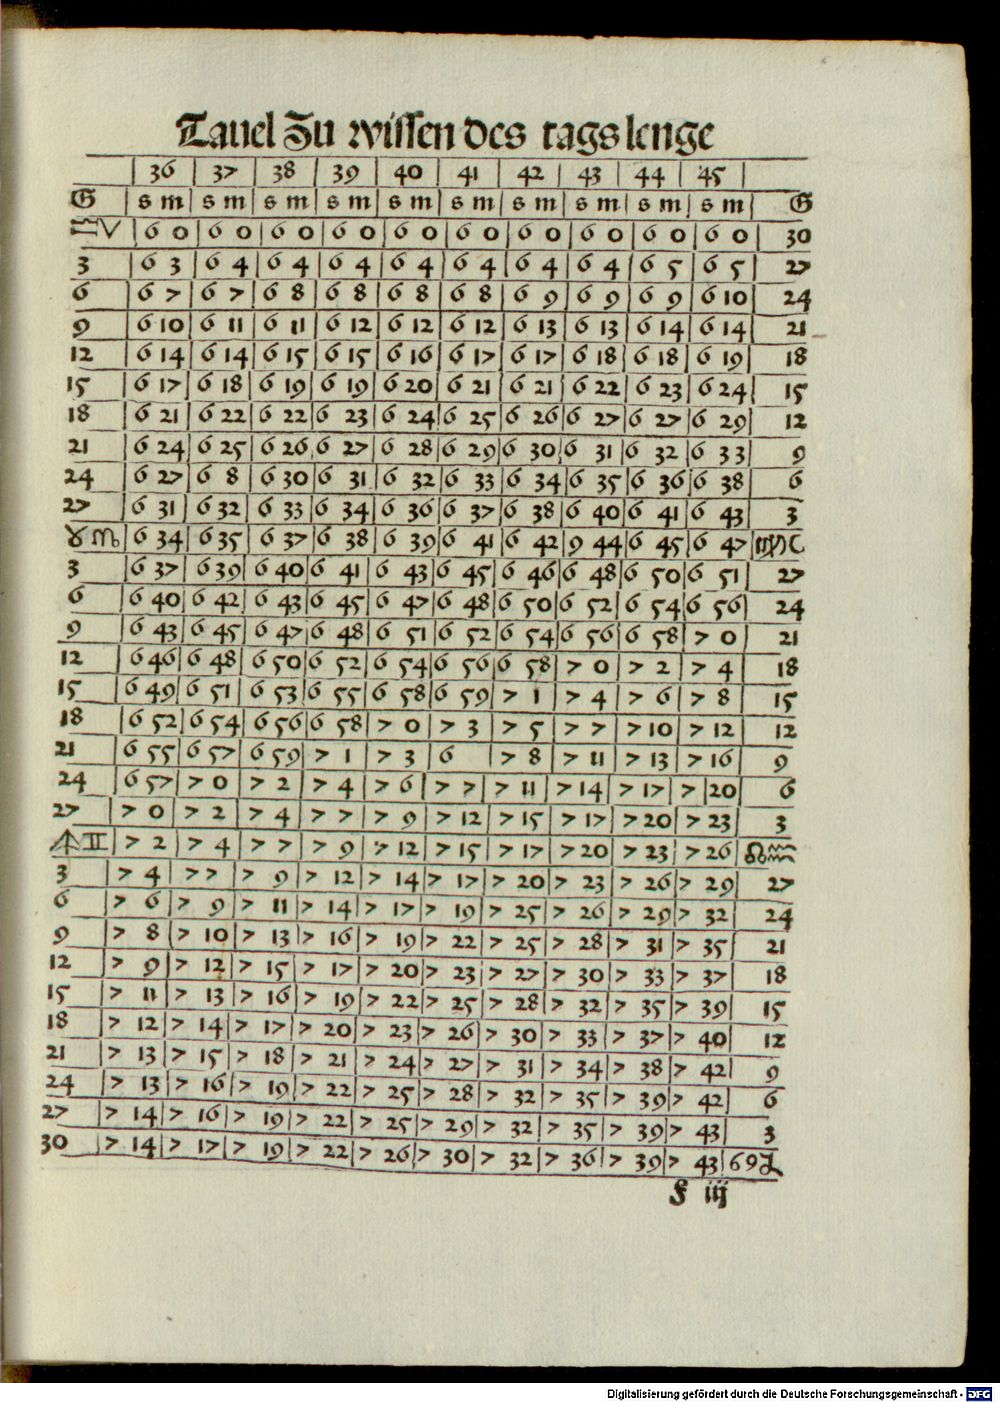 Tauel Zu wissen des tags lenge
36 37 38 39 40 41 42 43 44 45
G s m s m s m s m s m s m s m s m s m s m G
♎♈ 6 0 6 0 6 0 6 0 6 0 6 0 6 0 6 0 6 0 6 0 30
3 6 3 6 4 6 4 6 4 6 4 6 4 6 4 6 4 6 5 6 5 27
6 6 7 6 7 6 8 6 8 6 8 6 8 6 9 6 9 6 9 6 10 24
9 6 10 6 11 6 11 6 12 6 12 6 12 6 13 6 13 6 14 6 14 21
12 6 14 6 14 6 15 6 15 6 16 6 17 6 17 6 18 6 18 6 19 18
15 6 17 6 18 6 19 6 19 6 20 6 21 6 21 6 22 6 23 6 24 15
18 6 21 6 22 6 22 6 23 6 24 6 25 6 26 6 27 6 27 6 29 12
21 6 24 6 25 6 26 6 27 6 28 6 29 6 30 6 31 6 32 6 33 9
24 6 27 6 8 6 30 6 31 6 32 6 33 6 34 6 35 6 36 6 38 6
27 6 31 6 32 6 33 6 34 6 36 6 37 6 38 6 40 6 41 6 43 3
♉♏ 6 34 6 35 6 37 6 38 6 39 6 41 6 42 9 44 6 45 6 47
3 6 37 6 39 6 40 6 41 6 43 6 45 6 46 6 48 6 50 6 51 27
6 6 40 6 42 6 43 6 45 6 47 6 48 6 50 6 52 6 54 6 56 24
9 6 43 6 45 6 47 6 48 6 51 6 52 6 54 6 56 6 58 7 0 21
12 6 46 6 48 6 50 6 52 6 54 6 56 6 58 7 0 7 2 7 4 18
15 6 49 6 51 6 53 6 55 6 58 6 59 7 1 7 4 7 6 7 8 15
18 6 52 6 54 6 56 6 58 7 0 7 3 7 5 7 7 7 10 7 12 12
21 6 55 6 57 6 59 7 1 7 3 6 7 8 7 11 7 13 7 16 9
24 6 57 7 0 7 2 7 4 7 6 7 7 7 11 7 14 7 17 7 20 6
27 7 0 7 2 7 4 7 7 7 9 7 12 7 15 7 17 7 20 7 23 3
♐♊ 7 2 7 4 7 7 7 9 7 12 7 15 7 17 7 20 7 23 7 26 ♌♒
3 7 4 7 7 7 9 7 12 7 14 7 17 7 20 7 23 7 26 7 29 27
6 7 6 7 9 7 11 7 14 7 17 7 19 7 25 7 26 7 29 7 32 24
9 7 8 7 10 7 13 7 16 7 19 7 22 7 25 7 28 7 31 7 35 21
12 7 9 7 12 7 15 7 17 7 20 7 23 7 27 7 30 7 33 7 37 18
15 7 11 7 13 7 16 7 19 7 22 7 25 7 28 7 32 7 35 7 39 15
18 7 12 7 14 7 17 7 20 7 23 7 26 7 30 7 33 7 37 7 40 12
21 7 13 7 15 7 18 7 21 7 24 7 27 7 31 7 34 7 38 7 42 9
24 7 13 7 16 7 19 7 22 7 25 7 28 7 32 7 35 7 39 7 42 6
27 7 14 7 16 7 19 7 22 7 25 7 29 7 32 7 35 7 39 7 43 3
30 7 14 7 17 7 19 7 22 7 26 7 30 7 32 7 36 7 39 7 43 ♋♑
f iij
Digitalisierung gefördert durch die Deutsche Forschungsgemeinschaft - DFG